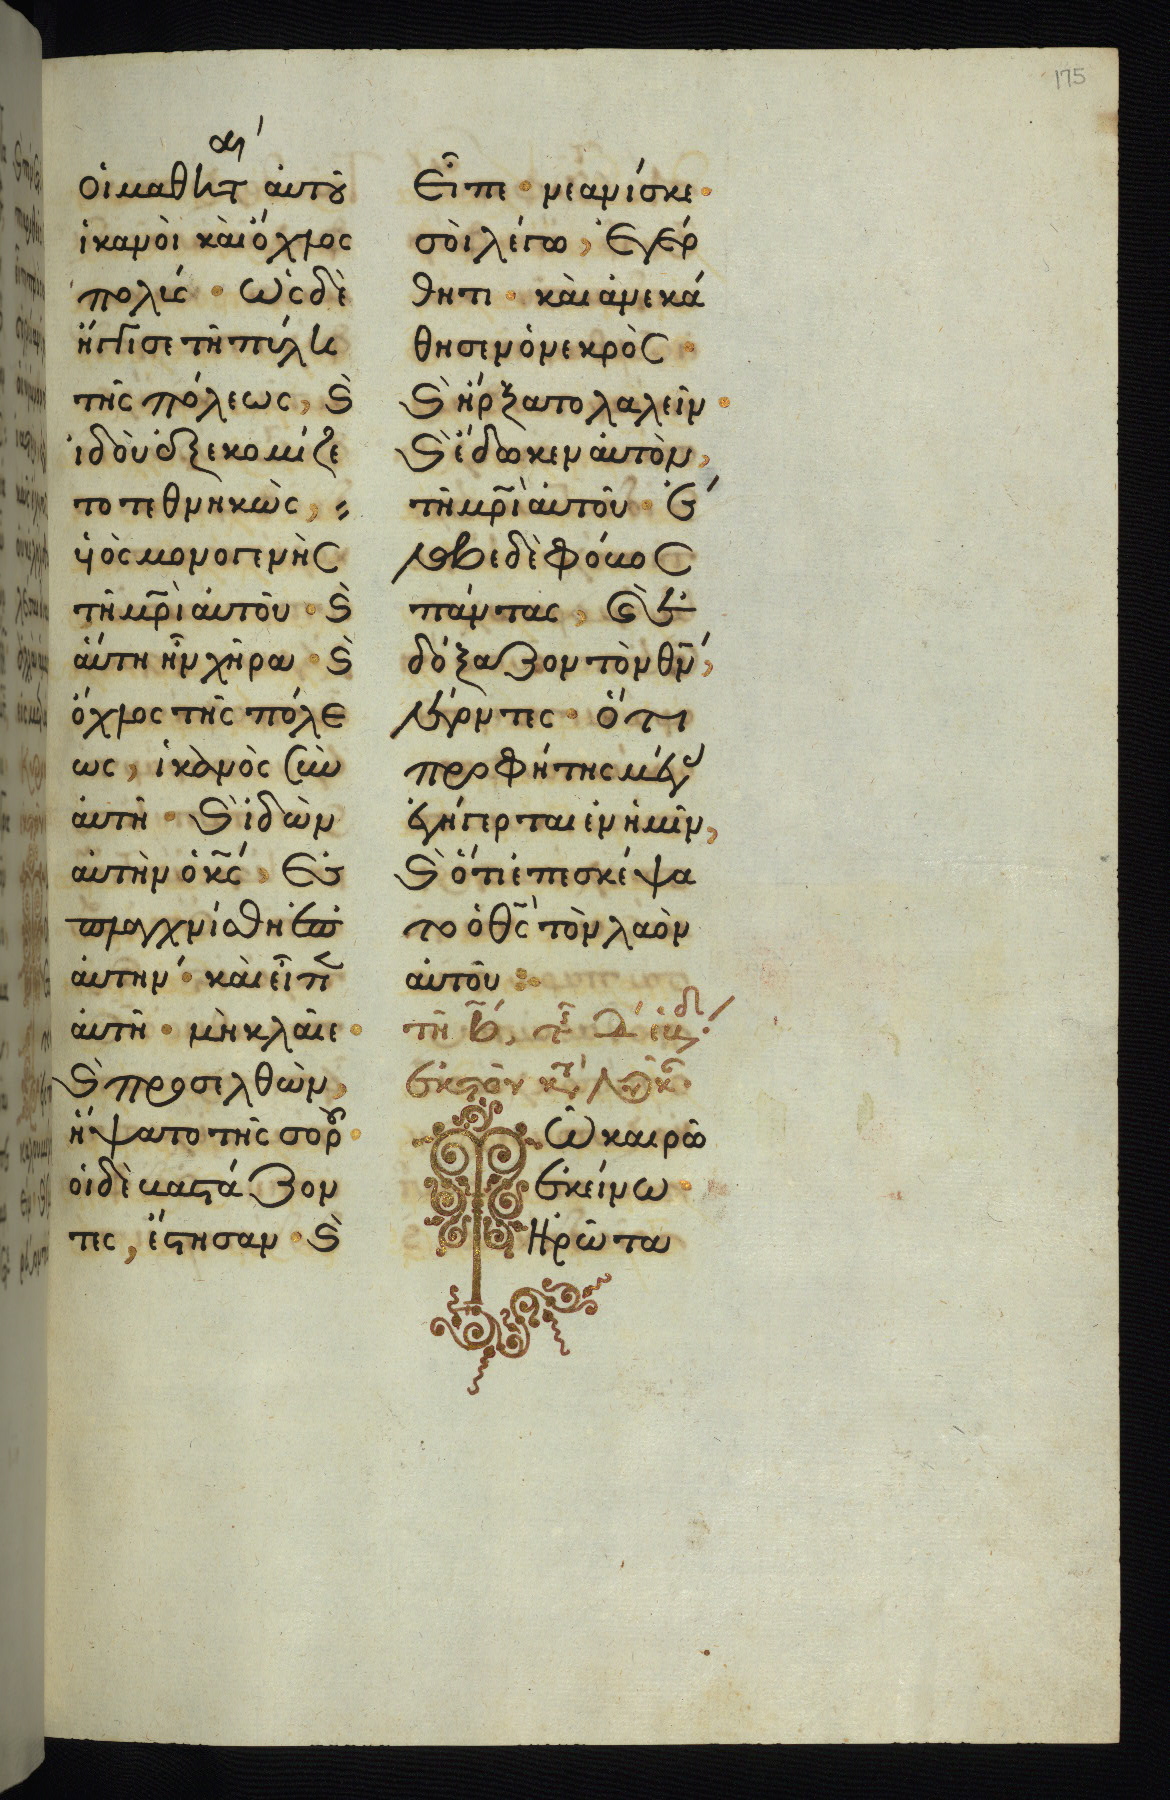 175
οἱ μαθητ(αὶ) αὐτοῦ
ἱκανοὶ καὶ ὄχλος
πολύς · ὡς δὲ
ἤγγισε τῇ πύλη
τῆς πόλεως, καὶ
ἰδοὺ ἐξεκομίζε
το τεθνηκὼς,
υἱὸς μονογενὴς
τῇ μρὶ αὐτοῦ · καὶ
αὕτη ἦν χήρα · καὶ
ὄχλος τῆς πόλε
ως, ἱκανὸς σὺν
αὐτῇ · καὶ ἰδὼν
αὐτὴν ὁ κς, ἐ
σπλαγχνίσθη ἐπ
αὐτήν · καὶ εἶπεν
αὐτῇ · μὴ κλαῖε ·
καὶ προσελθὼν,
ἥψατο τῆς σοροῦ ·
οἱ δὲ βαστάζον
τες, ἔστησαν · καὶ
εἶπε · νεανίσκε ·
σοὶ λέγω, ἐγέρ
θητι · καὶ ἀνεκά
θησεν ὁ νεκρὸς ·
καὶ ἤρξατο λαλεῖν ·
καὶ ἔδωκεν αὐτὸν,
τῇ μρὶ αὐτοῦ · ἔ
λαβε δὲ φόβος
πάντας, καὶ ἐ
δόξαζον τὸν θν,
λέγοντες · ὅτι
προφήτης μέγας
ἐγήγερται ἐν ἡμῖν,
καὶ ὅτι ἐπεσκέψα
το ὁ θς τὸν λαὸν
αὐτοῦ :
τῇ β, τῆς δ ἑβδ
ἐκ τοῦ κτ Λουκ
Τῶ καιρῶ
ἐκείνω ·
ἠρώτα